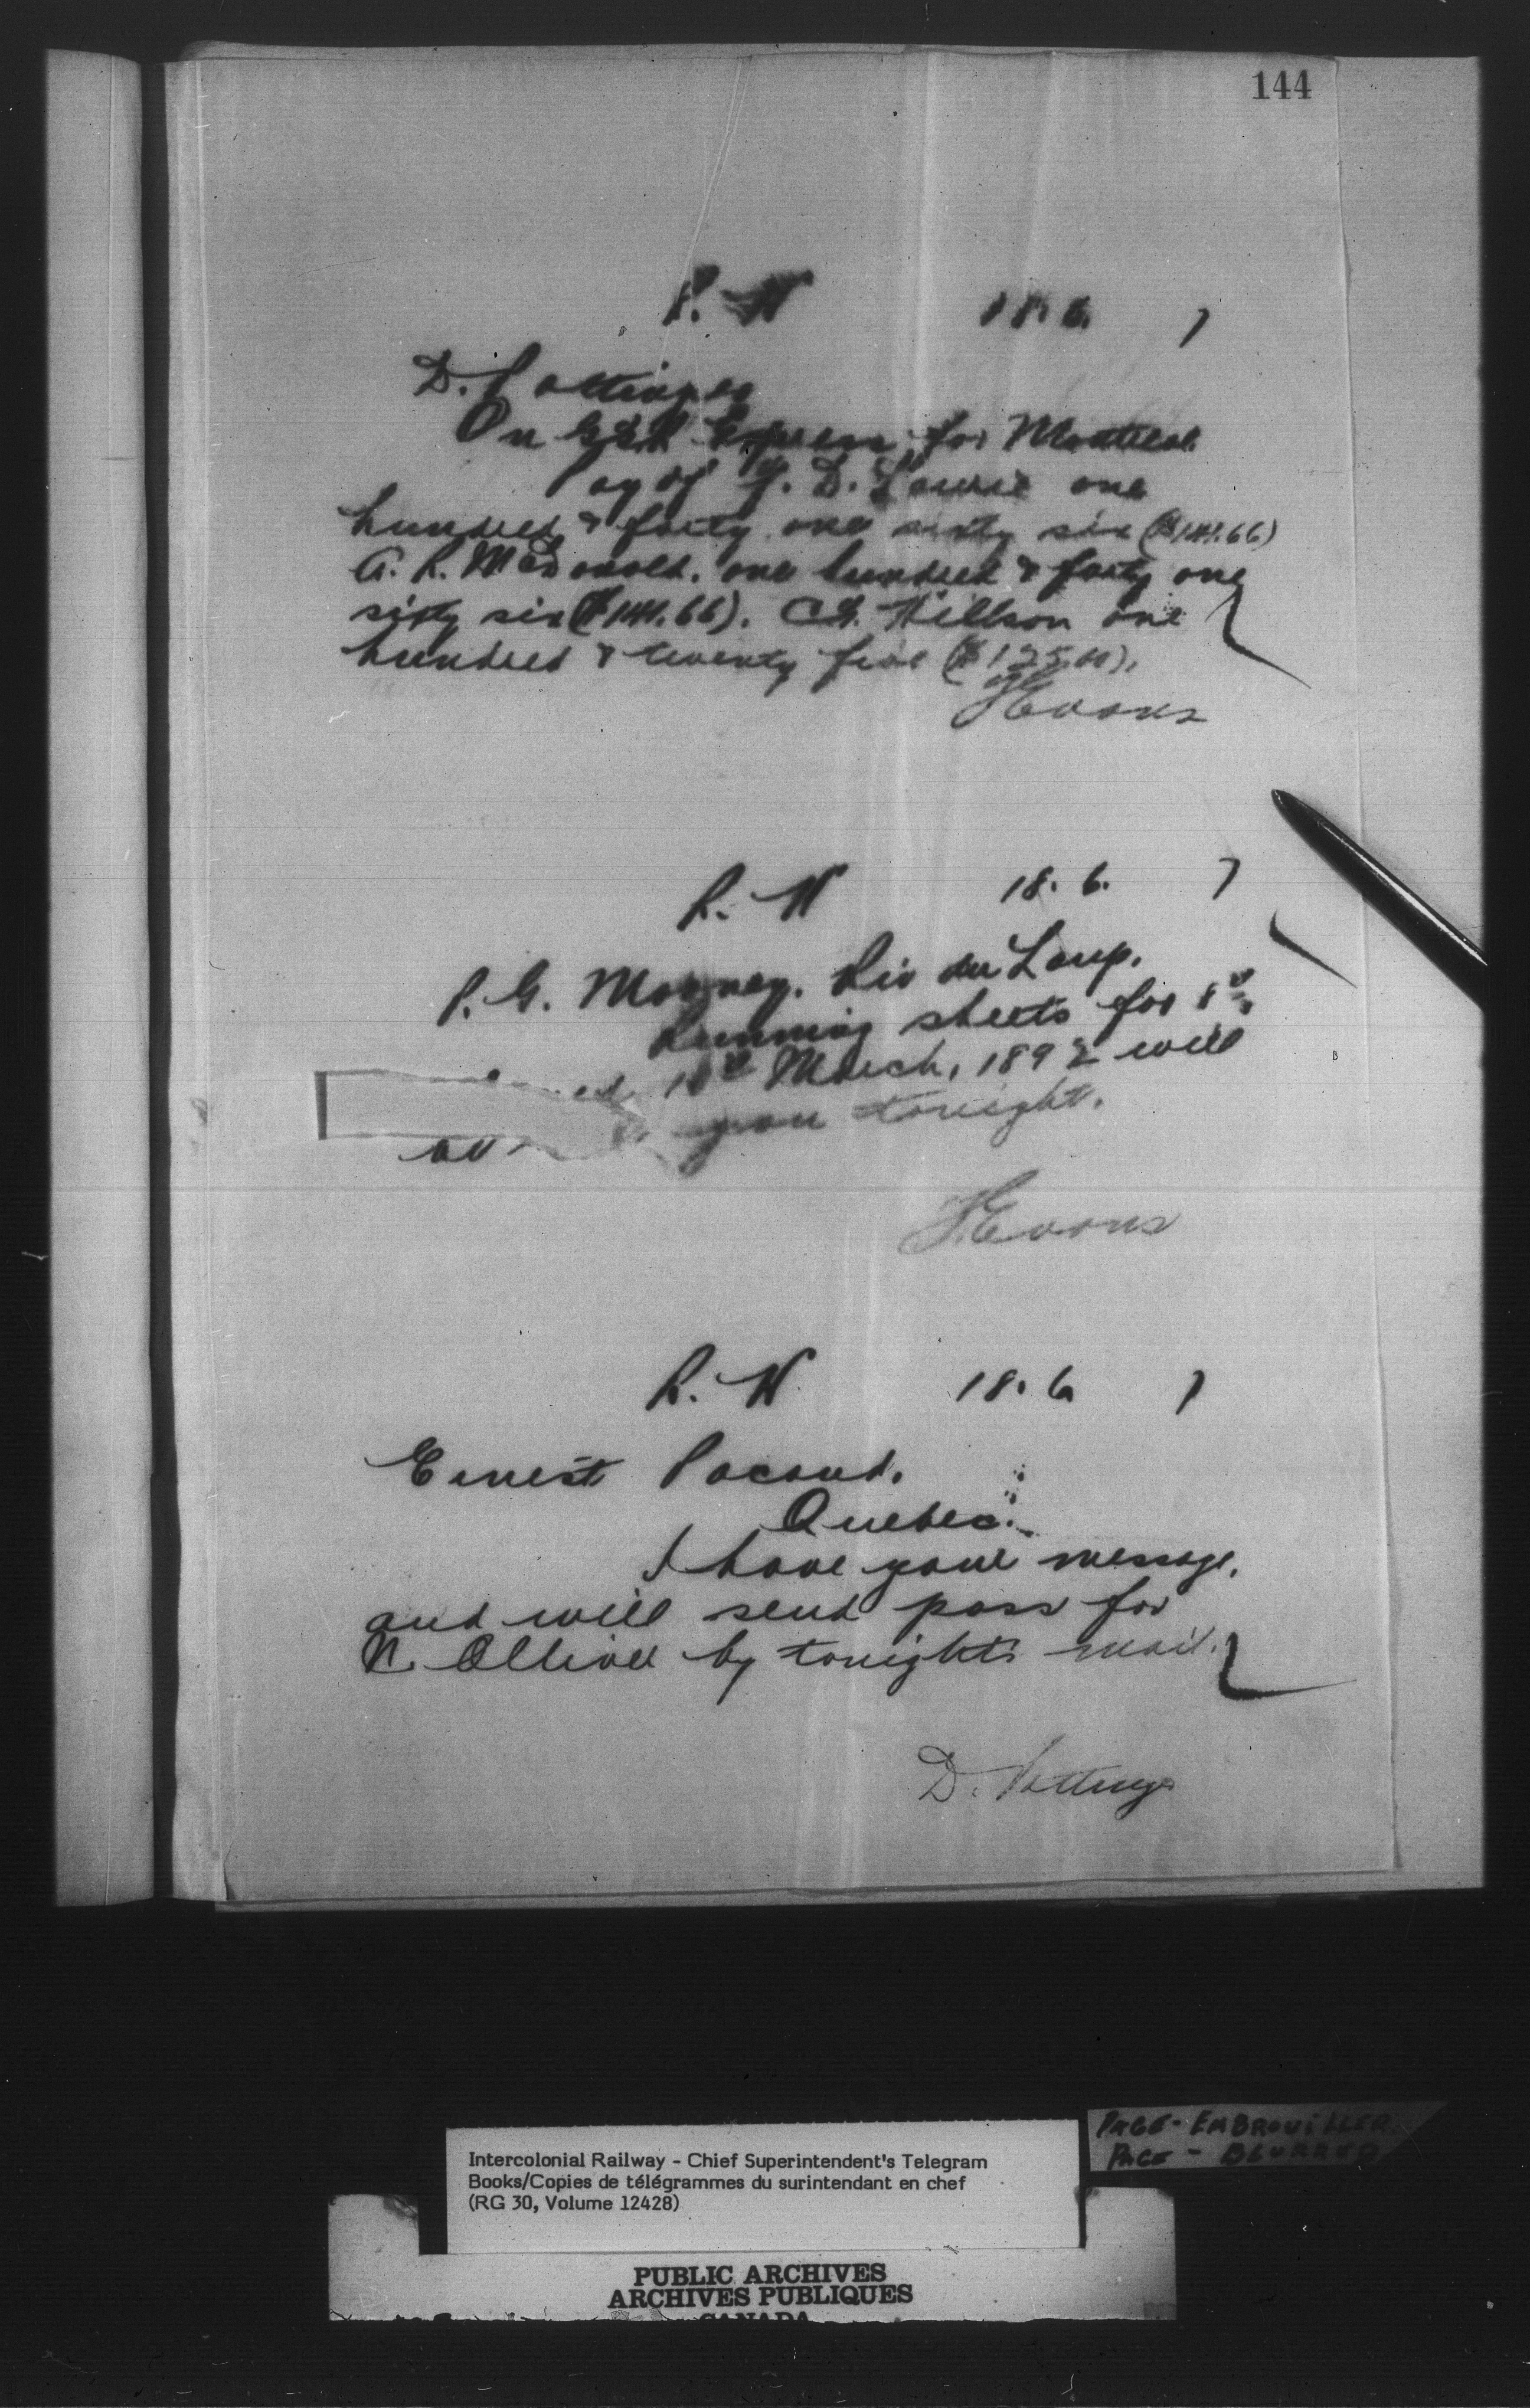 144
R. W 18. 6. 7
D. Pottinger
On Express for Montreal.
Pay of J. D. Lawrie one
hundred & forty one sixty six ($141.66)
A. R. McDonald. one hundred & forty one
sixty six ($141.66). Hillson one
hundred & twenty five ($125.00).
Evans
R. W 18. 6. 7
P. G. Riv du Loup.
Running sheets for 8th
10th March, 1892 will
you tonight.
Evans
R. W 18. 6 7
Ernest Pacaud.
Quebec.
I have your message,
and will send pass for
N. Olliver by tonights mail.
D. Pottinger
PAGE - EMBROUILLER.
PAGE - BLURRED
Intercolonial Railway - Chief Superintendent's Telegram
Books/Copies de télégrammes du surintendant en chef
(RG 30, Volume 12428)
PUBLIC ARCHIVES
ARCHIVES PUBLIQUES
CANADA